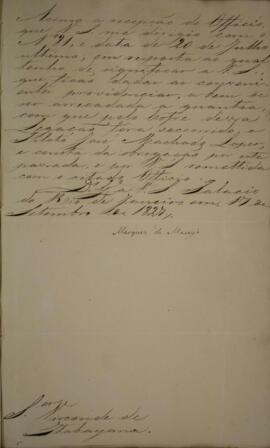 Accuso a recepção do Officio,
que V. S. me dirigio com o
Nº 21, e data de 20 de Julho
ultimo, em resposta ao qual
tenho de significar a V. S.,
que ficão dadas as conveni-
entes providencias, a fim de
ser arrecadada a quantia,
com que pelo cofre dessa
Legação fora soccorrido, o
Piloto José Machado Lopes,
e consta da obrigação por elle
passada, e por V. S. remettida
com o citado Officio.
Deos Ge a V. S. Palacio
do Rio de Janeiro em 17 de
Setembro de 1827.
Marquez de
Snor
Visconde de
Itabayana.